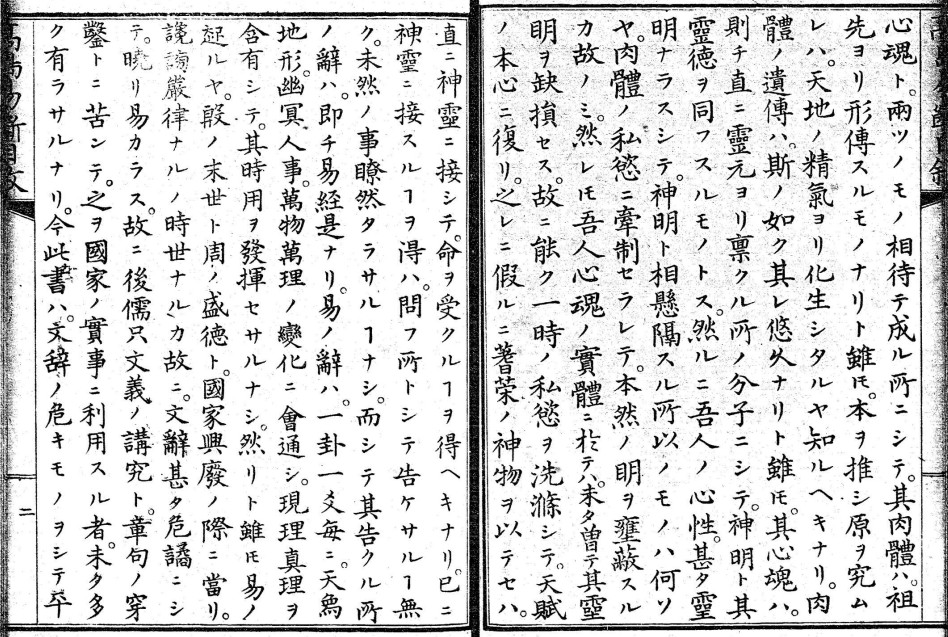 心魂ト。兩ツノモノ相待テ成ル所ニシテ。其肉體ハ。祖
先ヨリ形傳スルモノナリト雖𪜈。本ヲ推シ原ヲ究ム
レハ。天地ノ精氣ヨリ化生シタルヤ知ルヘキナリ。肉
體ノ遺傳ハ。斯ノ如ク其レ悠久ナリト雖𪜈。其心魂ハ。
則チ直ニ靈元ヨリ禀クル所ノ分子ニシテ。神明ト其
靈德ヲ同フスルモノトス。然ルニ吾人ノ心性。甚タ靈
明ナラスシテ。神明ト相懸隔スル所以ノモノハ何ソ
ヤ。肉體ノ私慾ニ牽制セラレテ。本然ノ明ヲ壅蔽スル
カ故ノミ。然レ𪜈吾人心魂ノ實體ニ於テハ。未タ曽テ其靈
明ヲ缺損セス。故ニ能ク一時ノ私慾ヲ洗滌シテ。天賦
ノ本心ニ復リ。之レニ假ルニ蓍莖ノ神物ヲ以テセハ。
直ニ神靈ニ接シテ。命ヲ受クルヿヲ得ヘキナリ。已ニ
神靈ニ接スルヿヲ得ハ。問フ所トシテ告ケサルヿ無
ク。未然ノ事瞭然タラサルヿナシ。而シテ其告クル所
ノ辭ハ。即チ易經是ナリ。易ノ辭ハ。一卦一爻每ニ。天爲
地形。幽冥人事。萬物萬理ノ變化ニ會通シ。現理真理ヲ
含有シテ。其時用ヲ發揮セサルナシ。然リト雖𪜈易ノ
起ルヤ。殷ノ末世ト周ノ盛德ト。國家興廢ノ際ニ當リ。
讒謗嚴律ナルノ時世ナルカ故ニ。文辭甚タ危譎ニシ
テ。曉リ易カラス。故ニ後儒只文義ノ講究ト。章句ノ穿
鑿トニ苦ンテ。之ヲ國家ノ實事ニ利用スル者。未タ多
ク有ラサルナリ。今此書ハ。文辞ノ危キモノヲシテ平
二